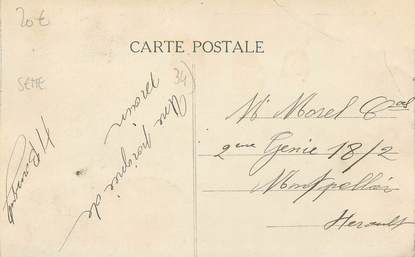 20€
SETE
CARTE POSTALE
34)
Une poignée de
main
Mr Morel Cpal
2eme Genie 18/2
Montpellier
Herault